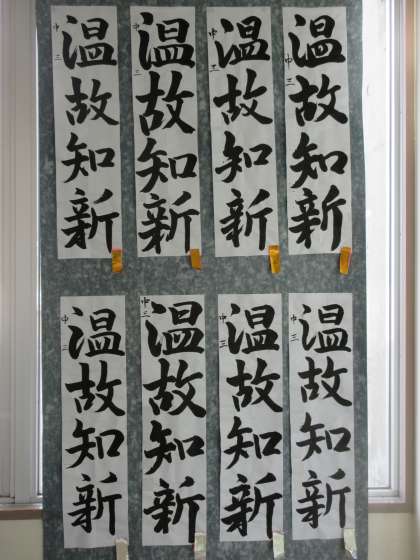 温故知新
中三
温故知新
中三
温故知新
中三
温故知新
中三
温故知新
中三
温故知新
中三
温故知新
中三
温故知新
中二